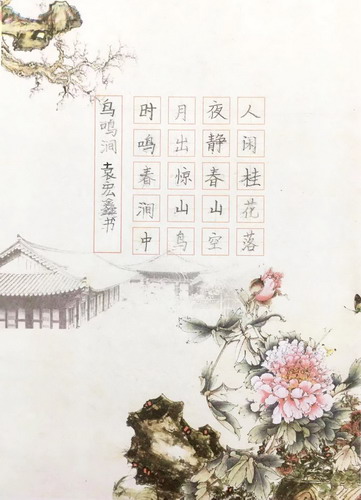 人闲桂花落
夜静春山空
月出惊山鸟
时鸣春涧中
鸟鸣涧 袁宏鑫书